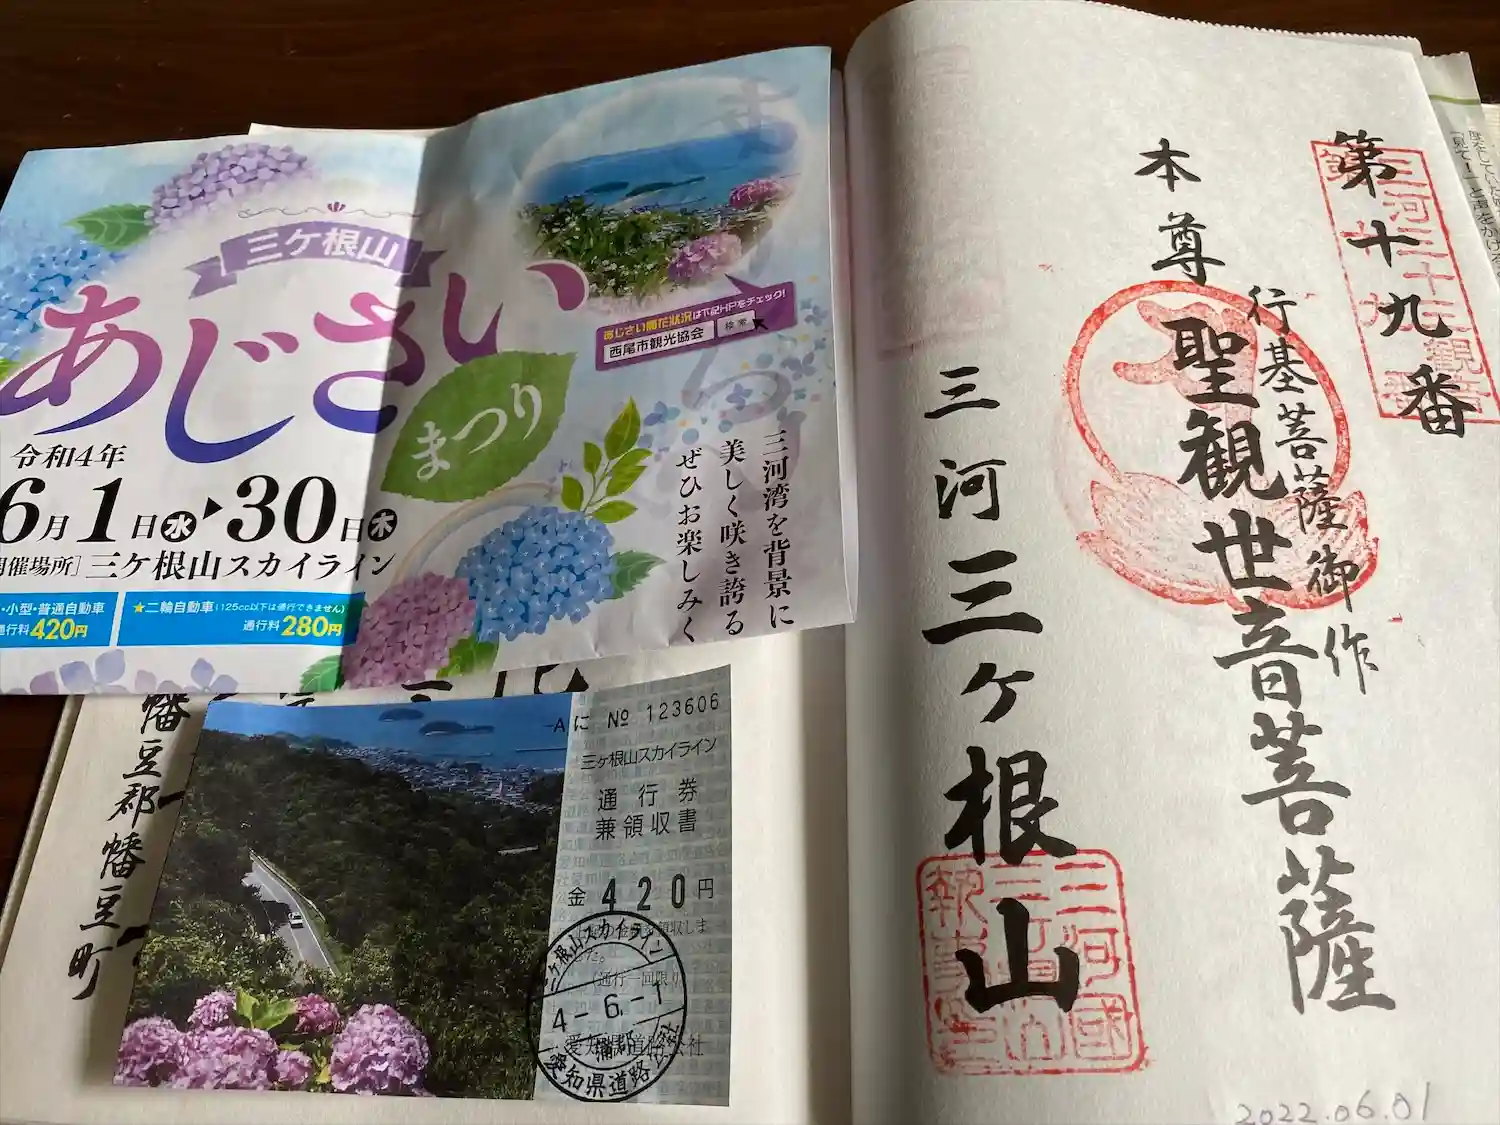 三ケ根山
あじさい
まつり
令和4年
6月1日水▶30日木
催場所］三ケ根山スカイライン
・小型・普通自動車
通行料420円
★二輪自動車(125cc以下は通行できません)
通行料280円
あじさい開花状況は下記HPをチェック!
西尾市観光協会
検索
三河湾を背景に
美しく咲き誇る
ぜひお楽しみく
Aに № 123606
三ケ根山スカイライン
通行券
兼領収書
金 420円
(通行一回限り)
三ケ根山スカイライン
4-6.-1
蒲郡
愛知県道路公社
幡豆郡幡豆町
第十九番
本尊
行基菩薩御作
聖観世音菩薩
三河三ヶ根山
2022.06.01